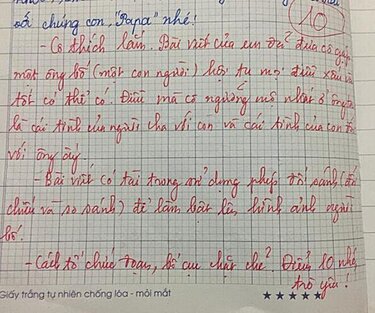 số chúng con, "Papa" nhé!
10
- Cô thích lắm. Bài viết của em đã đưa cô gặp
một ông bố (một con người) hội tụ mọi điều xấu và
tốt có thể có. Điều mà cô ngưỡng mộ nhất ở ông ấy
là cái tình của người cha với con và cái tình của con đối
với ông ấy
- Bài viết có tài trong sử dụng phép đối sánh (đối
chiếu và so sánh) để làm bật lên hình ảnh người
bố.
- Cách tổ chức đoạn, bố cục chặt chẽ. Điểm 10 nhé
trò yêu!
Giấy trắng tự nhiên chống lóa - mỏi mắt